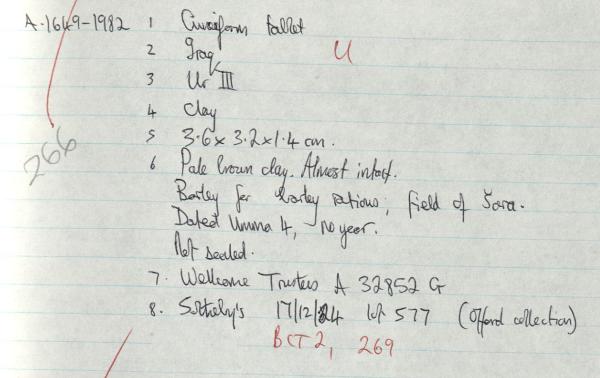 A.1649-1982 1 Cuneiform tablet
2 Iraq U
3 Ur III
4 Clay
5 3.6 x 3.2 x 1.4 cm.
266
6 Pale brown clay. Almost intact.
Barley for barley rations; field of Šara.
Dated Umma 4, no year.
Not sealed.
7. Wellcome Trustees A 32852 G
8. Sotheby's 17/12/24 lot 577 (Offord collection)
BCT 2, 269